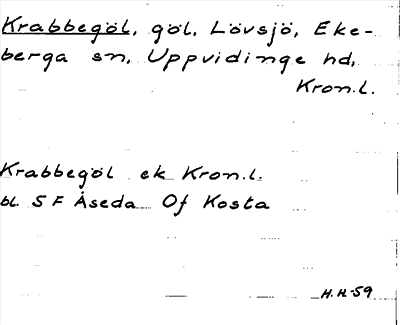 Krabbegöl, göl, Lövsjö, Eke-
berga sn, Uppvidinge hd,
Kron.l.
Krabbegöl ek Kron.l.
bl. 5 F Åseda Of Kosta
H.H.-59